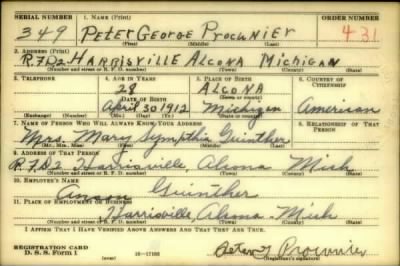 SERIAL NUMBER 1. NAME (Print) ORDER NUMBER
349 PETER GEORGE PROCUNIER 431
(First) (Middle) (Last)
2. ADDRESS (Print)
R.F.D 2 HARRISVILLE ALCONA MICHIGAN
(Number and street or R. F. D. number) (Town) (County) (State)
3. TELEPHONE 4. AGE IN YEARS 5. PLACE OF BIRTH 6. COUNTRY OF CITIZENSHIP
28 ALCONA
DATE OF BIRTH (Town or county)
April 30 1912 Michigan American
(Mo.) (Day) (Yr.) (State or country)
7. NAME OF PERSON WHO WILL ALWAYS KNOW YOUR ADDRESS 8. RELATIONSHIP OF THAT PERSON
Mrs. Mary Guinther
(Mr., Mrs., Miss) (First) (Middle) (Last)
9. ADDRESS OF THAT PERSON
R.F.D 2 Harrisville, Alcona Mich
(Number and street or R. F. D. number) (Town) (County) (State)
10. EMPLOYER'S NAME
Guinther
11. PLACE OF EMPLOYMENT OR BUSINESS
Harrisville, Alcona. Mich
(Number and street or R. F. D. number) (Town) (County) (State)
I AFFIRM THAT I HAVE VERIFIED ABOVE ANSWERS AND THAT THEY ARE TRUE.
REGISTRATION CARD
D. S. S. Form 1 Peter G Procunier
(Registrant's signature)